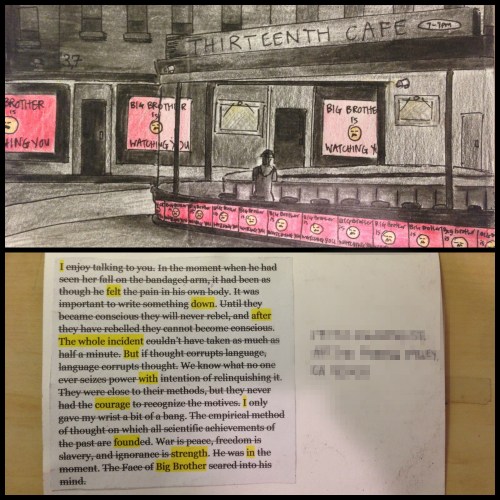 THIRTEENTH CAFE 7-7pm
37
BROTHER
IS
HING YOU
BIG BROTHER
IS
WATCHING YOU
BIG BROTHE
IS
WATCHING Y
BIG BROTHER
IS
WATCHING YOU
I enjoy talking to you. In the moment when he had
seen her fall on the bandaged arm, it had been as
though he felt the pain in his own body. It was
important to write something down. Until they
become conscious they will never rebel, and after
they have rebelled they cannot become conscious.
The whole incident couldn't have taken as much as
half a minute. But if thought corrupts language,
language corrupts thought. We know what no one
ever seizes power with intention of relinquishing it.
They were close to their methods, but they never
had the courage to recognize the motives. I only
gave my wrist a bit of a bang. The empirical method
of thought on which all scientific achievements of
the past are founded. War is peace, freedom is
slavery, and ignorance is strength. He was in the
moment. The Face of Big Brother seared into his
mind.